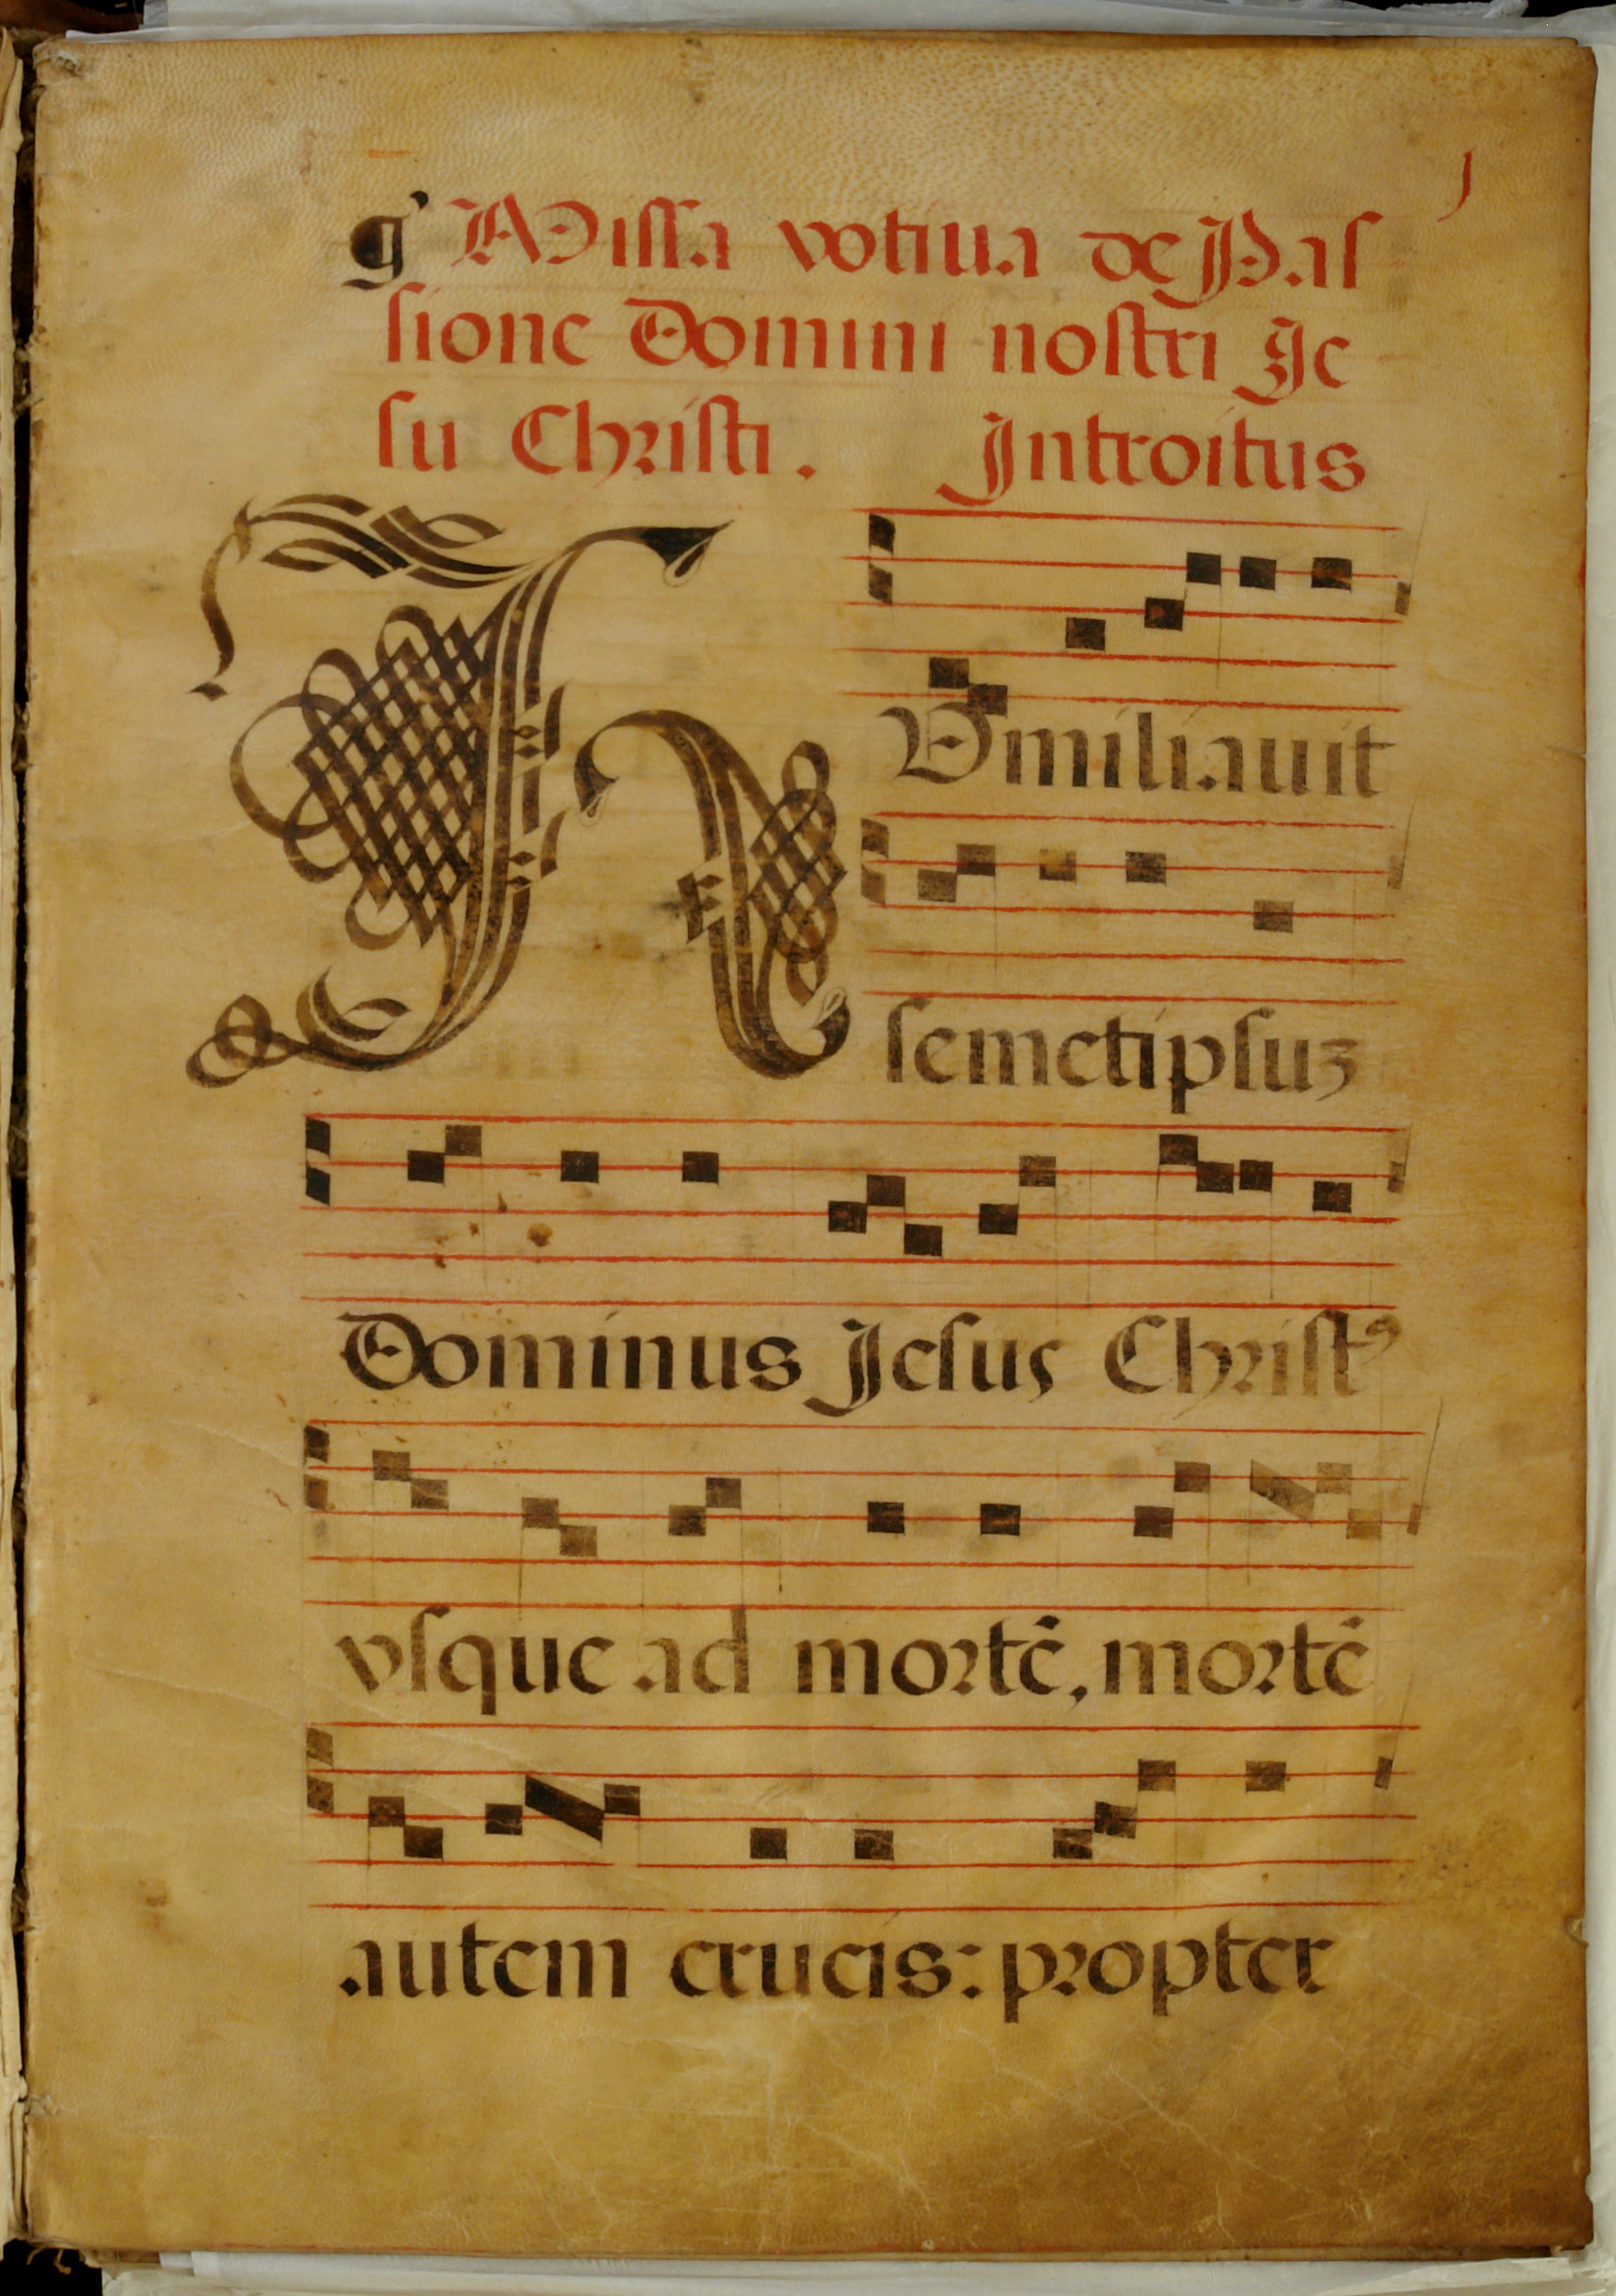 1
Missa votiua de Pas
sione Domini nostri Je
su Christi. Introitus
HVmiliauit
semetipsuz
Dominus Jesus Christ⁹
vsque ad mortē, mortē
autem crucis: propter